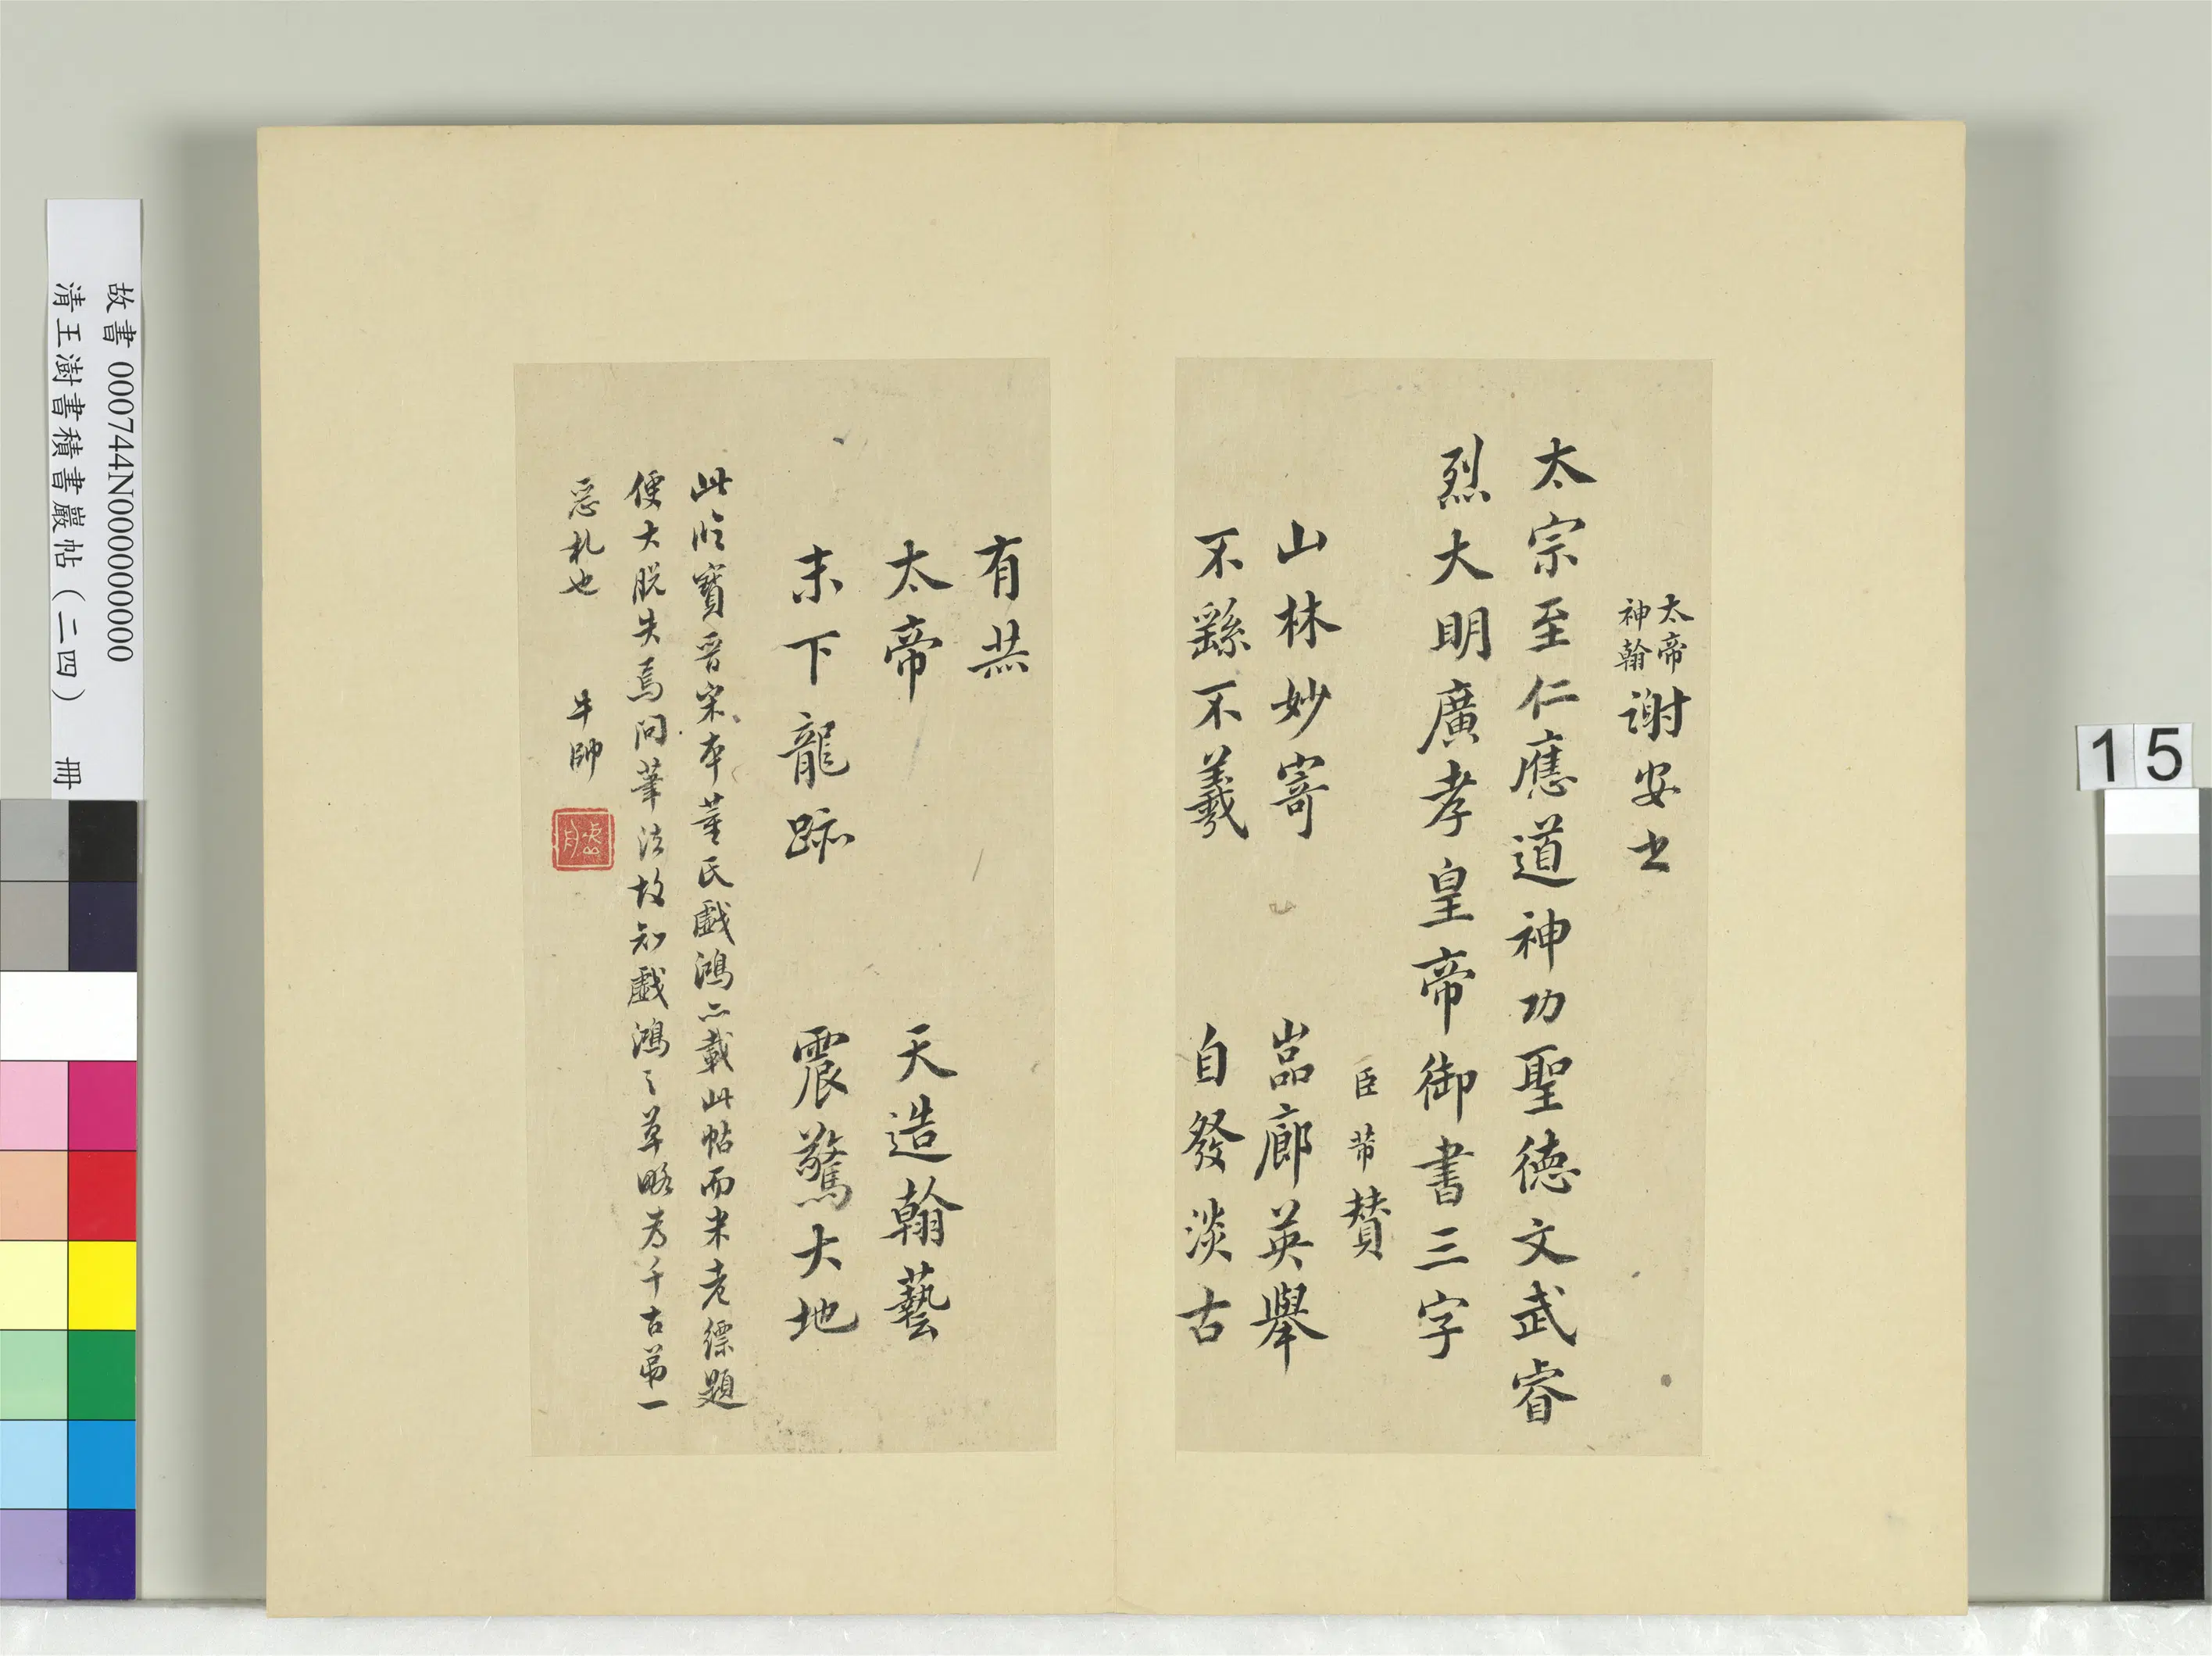 太帝
神翰
謝安書
太宗至仁應道神功聖德文武睿
烈大明廣孝皇帝御書三字
臣芾贊
山林妙寄 嵓廊英舉
不繇不羲 自發淡古
有赫
太帝 天造翰藝
末下龍跡 震驚大地
此臨寶晉宋本董氏戲鴻亦載此帖而米老縹題
便大脫失焉問筆法故知戲鴻之草略為千古第一
惡札也 牛帥
故書 000744N000000000
清王澍書積書巖帖(二四) 冊
15